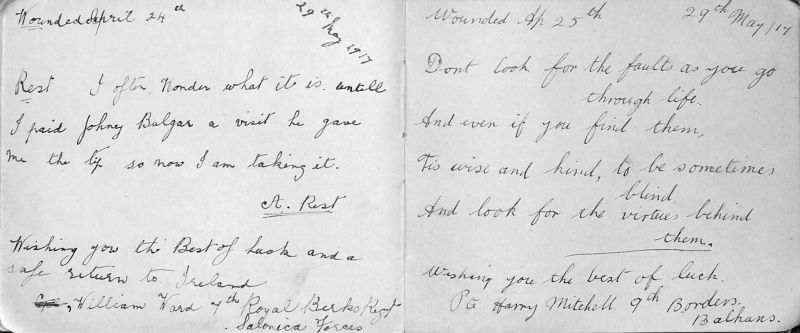 Wounded April 24th
29th May 1917
Rest I often Wonder what it is. untill
I paid Johney Bulgar a visit he gave
me the tip so now I am taking it.
A. Rest
Wishing you the Best of luck and a
safe return to Ireland
William Ward 7th Royal Berks Regt
Salonica Forces
Wounded Ap 25th
29th May/17
Dont look for the faults as you go
through life.
And even if you find them,
Tis wise and kind, to be sometimes
blind.
And look for the virtues behind
them.
Wishing you the best of luck.
Pte Harry Mitchell 9th Borders.
Balkans.